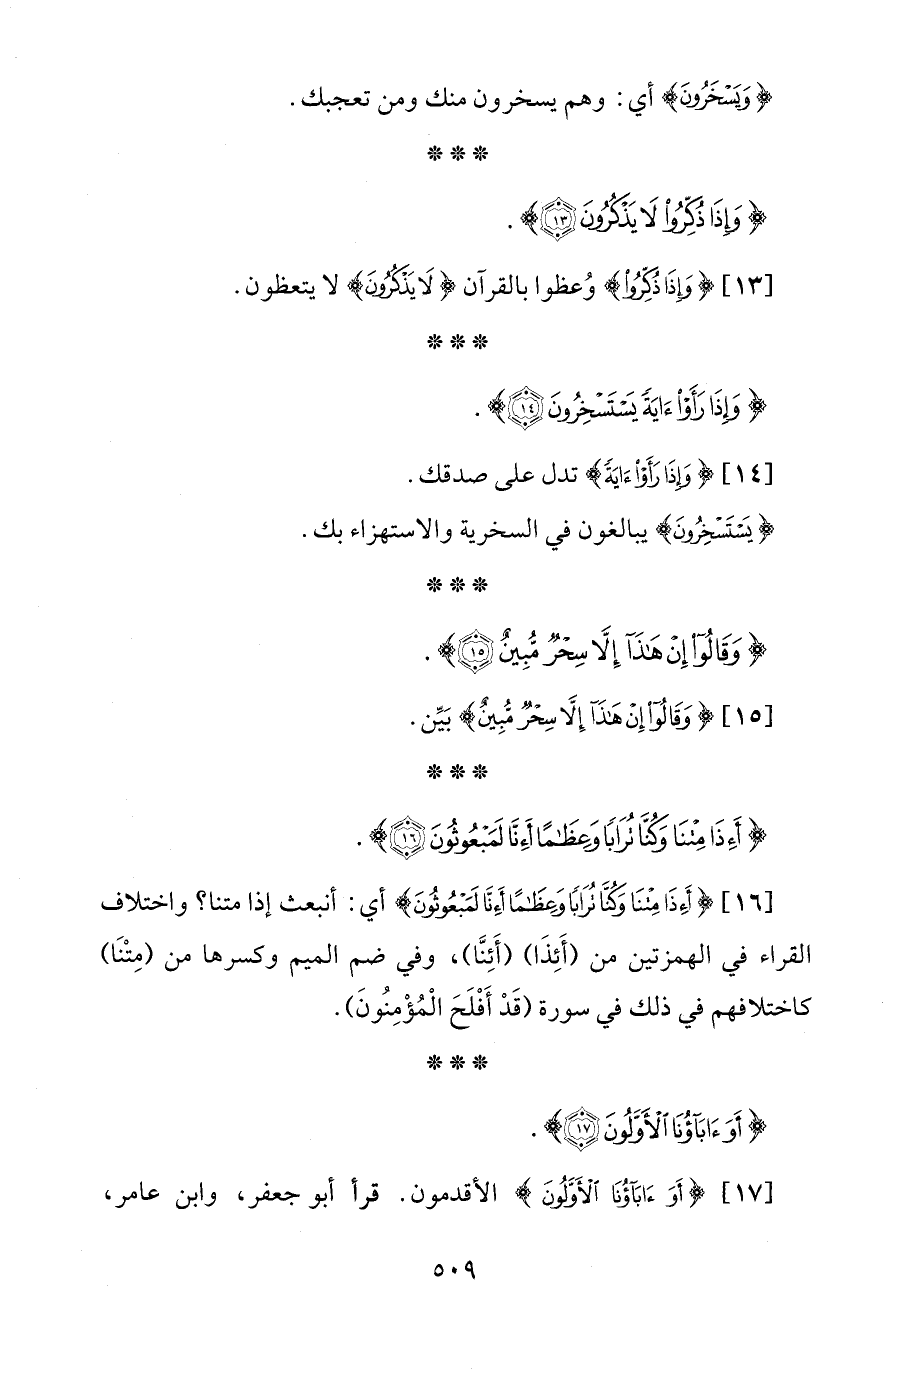 ﴿وَيَسْخَرُونَ﴾ أي: وهم يسخرون منك ومن تعجبك.
* * *
﴿وَإِذَا ذُكِّرُوا۟ لَا يَذْكُرُونَ ۝١٣﴾.
[١٣] ﴿وَإِذَا ذُكِّرُوا۟﴾ وُعظوا بالقرآن ﴿لَا يَذْكُرُونَ﴾ لا يتعظون.
* * *
﴿وَإِذَا رَأَوْا۟ ءَايَةً يَسْتَسْخِرُونَ ۝١٤﴾.
[١٤] ﴿وَإِذَا رَأَوْا۟ ءَايَةً﴾ تدل على صدقك.
﴿يَسْتَسْخِرُونَ﴾ يبالغون في السخرية والاستهزاء بك.
* * *
﴿وَقَالُوٓا۟ إِنْ هَٰذَآ إِلَّا سِحْرٌ مُّبِينٌ ۝١٥﴾.
[١٥] ﴿وَقَالُوٓا۟ إِنْ هَٰذَآ إِلَّا سِحْرٌ مُّبِينٌ﴾ بَيِّن.
* * *
﴿أَءِذَا مِتْنَا وَكُنَّا تُرَابًا وَعِظَٰمًا أَءِنَّا لَمَبْعُوثُونَ ۝١٦﴾.
[١٦] ﴿أَءِذَا مِتْنَا وَكُنَّا تُرَابًا وَعِظَٰمًا أَءِنَّا لَمَبْعُوثُونَ﴾ أي: أنبعث إذا متنا؟ واختلاف
القراء في الهمزتين من (أَئِذَا) (أَئِنَّا)، وفي ضم الميم وكسرها من (مِتْنَا)
كاختلافهم في ذلك في سورة (قَدْ أَفْلَحَ الْمُؤْمِنُونَ).
* * *
﴿أَوَءَابَآؤُنَا ٱلْأَوَّلُونَ ۝١٧﴾.
[١٧] ﴿أَوَءَابَآؤُنَا ٱلْأَوَّلُونَ﴾ الأقدمون. قرأ أبو جعفر، وابن عامر،
٥٠٩